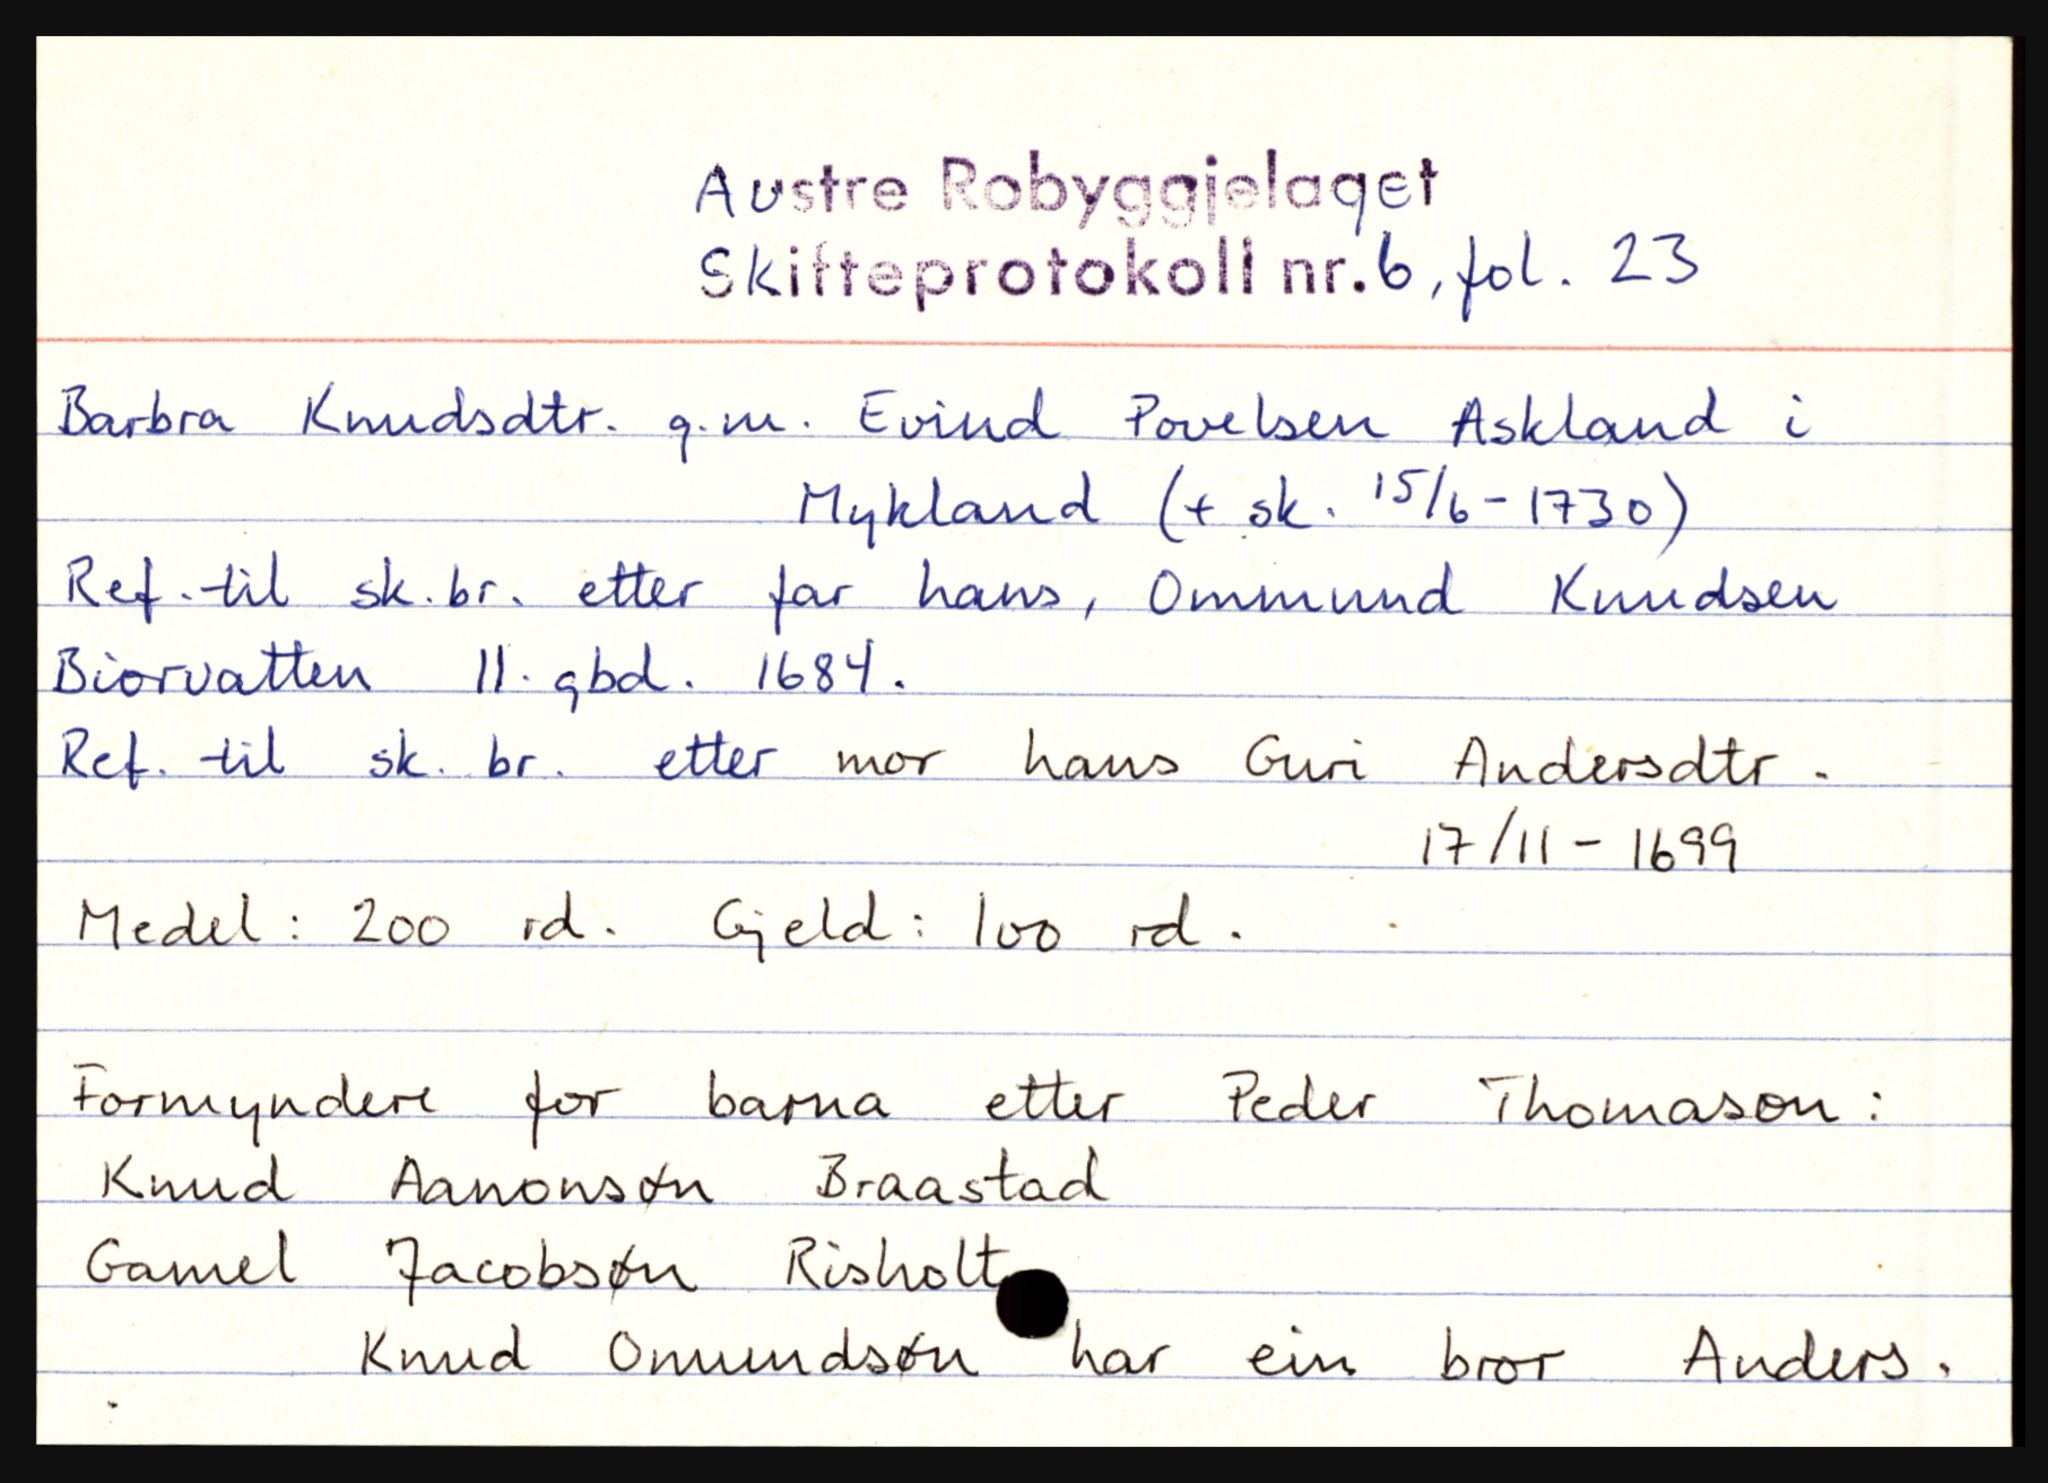 Austre Robyggjelaget
Skifteprotokoll nr. 6, fol. 23
Barbra Knudsdtr. g.m. Evind Povelsen Askland i
Mykland (+ sk. 15/6-1730)
Ref. til sk.br. etter far hans, Ommund Knudsen
Biorvatten 11. gbd. 1684.
Ref. til sk. br. etter mor hans Guri Andersdtr.
17/11 - 1699
Medel: 200 rd. Gjeld: 100 rd.
Formyndere for barna etter Peder Thomason:
Knud Aanonsøn Braastad
Gamel Jacobsøn Risholt
Knud Omundsøn har ein bror Anders.